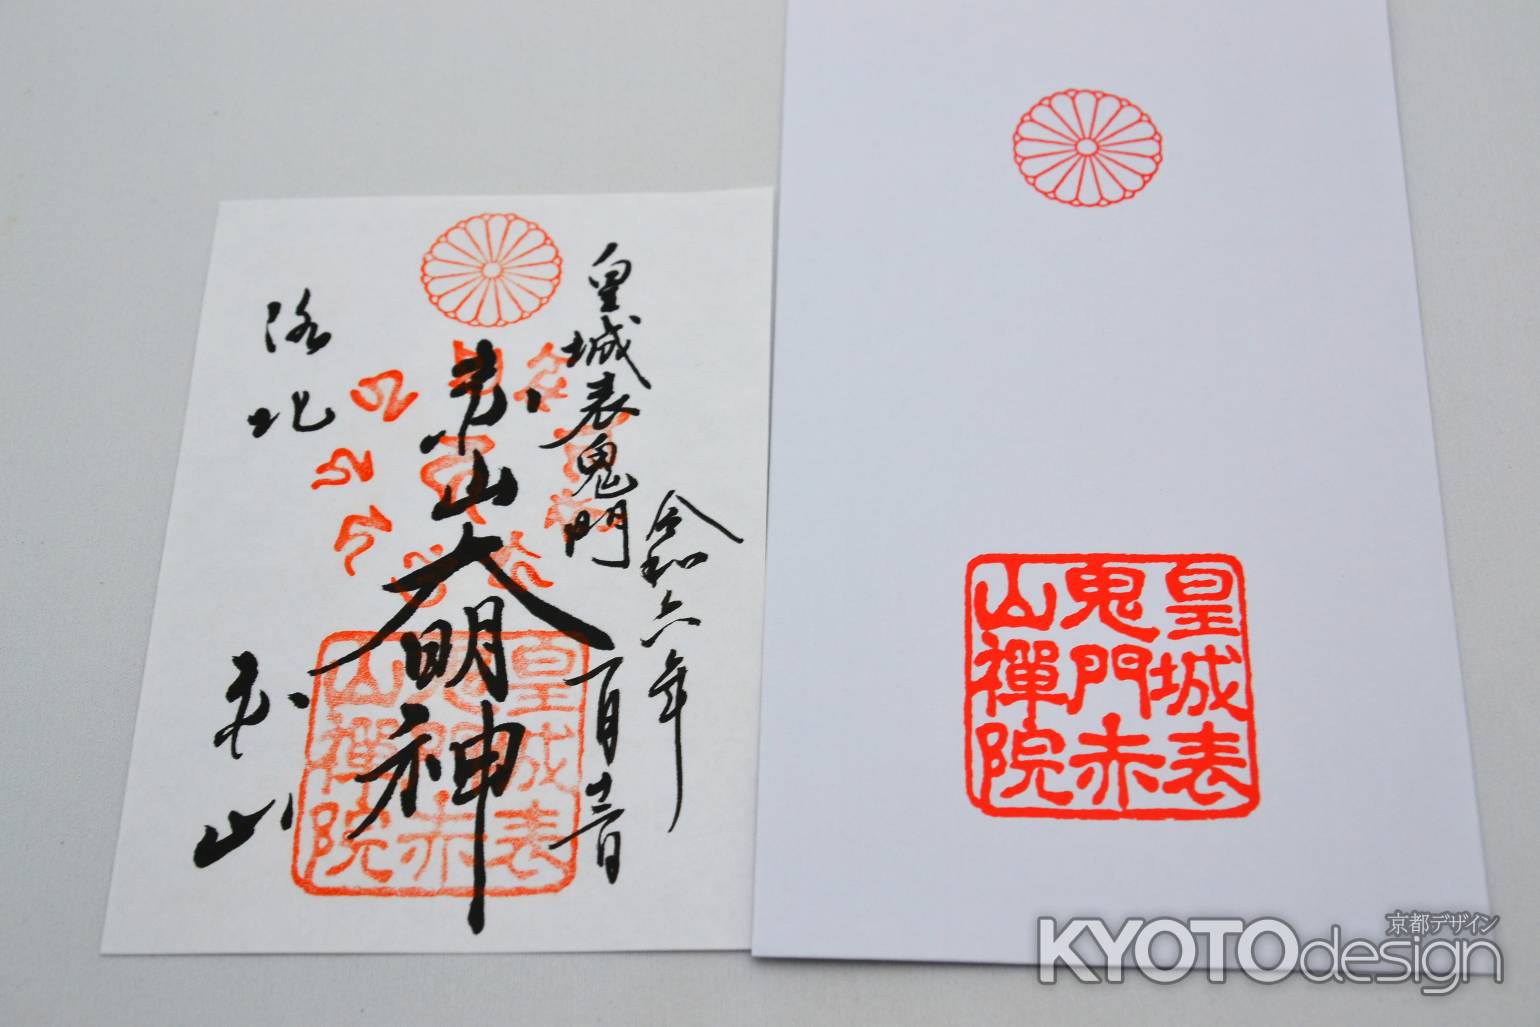 皇城表鬼門
令和六年
一月十三日
赤山大明神
洛北
赤山
皇城表
鬼門赤
山禪院
皇城表
鬼門赤
山禪院
京都デザイン
KYOTOdesign